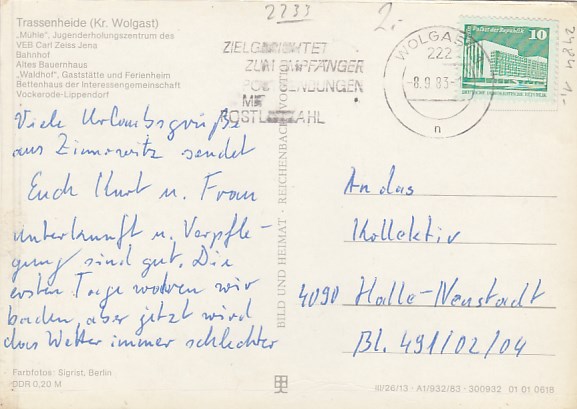 2733
2484 1,-
Trassenheide (Kr. Wolgast)
„Mühle", Jugenderholungszentrum des
VEB Carl Zeiss Jena
Bahnhof
Altes Bauernhaus
„Waldhof", Gaststätte und Ferienheim
Bettenhaus der Interessengemeinschaft
Vockerode-Lippendorf
ZIELGERICHTET
ZUM EMPFÄNGER
POSTSENDUNGEN
MIT
POSTLEITZAHL
WOLGAST
222
-8.9.83-
n
Palast der Republik
10
DEUTSCHE DEMOKRATISCHE REPUBLIK
Viele Urlaubsgrüße
aus Zinnowitz sendet
Euch Kurt u. Frau
Unterkunft u. Verpfle-
gung sind gut. Die
ersten Tage waren wir
baden, aber jetzt wird
das Wetter immer schlechter
An das
Kollektiv
4090 Halle-Neustadt
Bl. 491/02/04
BILD UND HEIMAT · REICHENBACH (VOGTL)
Farbfotos: Sigrist, Berlin
DDR 0,20 M
III/26/13 · A1/932/83 · 300932 01 01 0618